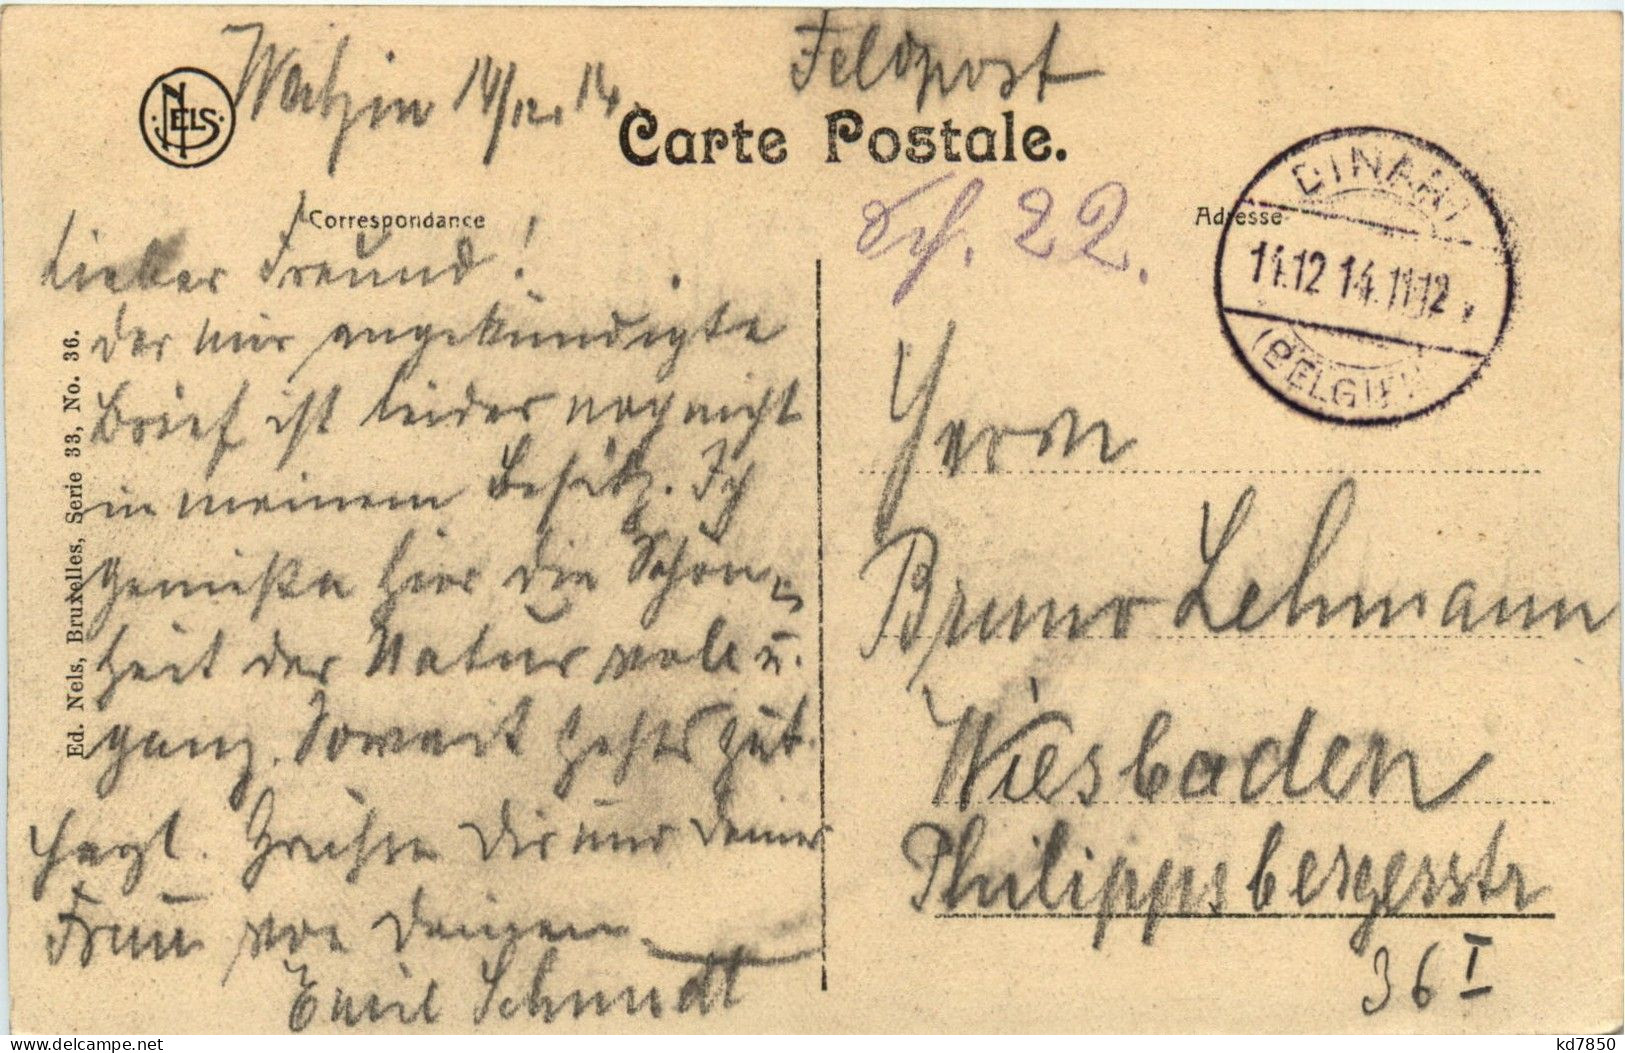 Feldpost
14/12. 14.
NELS
Carte Postale.
Correspondance
Adresse
Sch. 22.
DINANT
11.12 14. 11-12 V
(BELGIEN)
Lieber Freund!
Der mir angekündigte
Brief ist leider noch nicht
in meinem Besitz. Ich
genieße hier die Schön-
heit der Natur voll u.
ganz. Soweit gehts gut.
Grüße Dir und Deiner
Frau von Deinem
Emil Schmidt
Ed. Nels, Bruxelles, Serie 33, No. 36.
Herrn
Bruno Lehmann
Wiesbaden
Philippsbergerstr
36 I
kd7850
delcampe.net